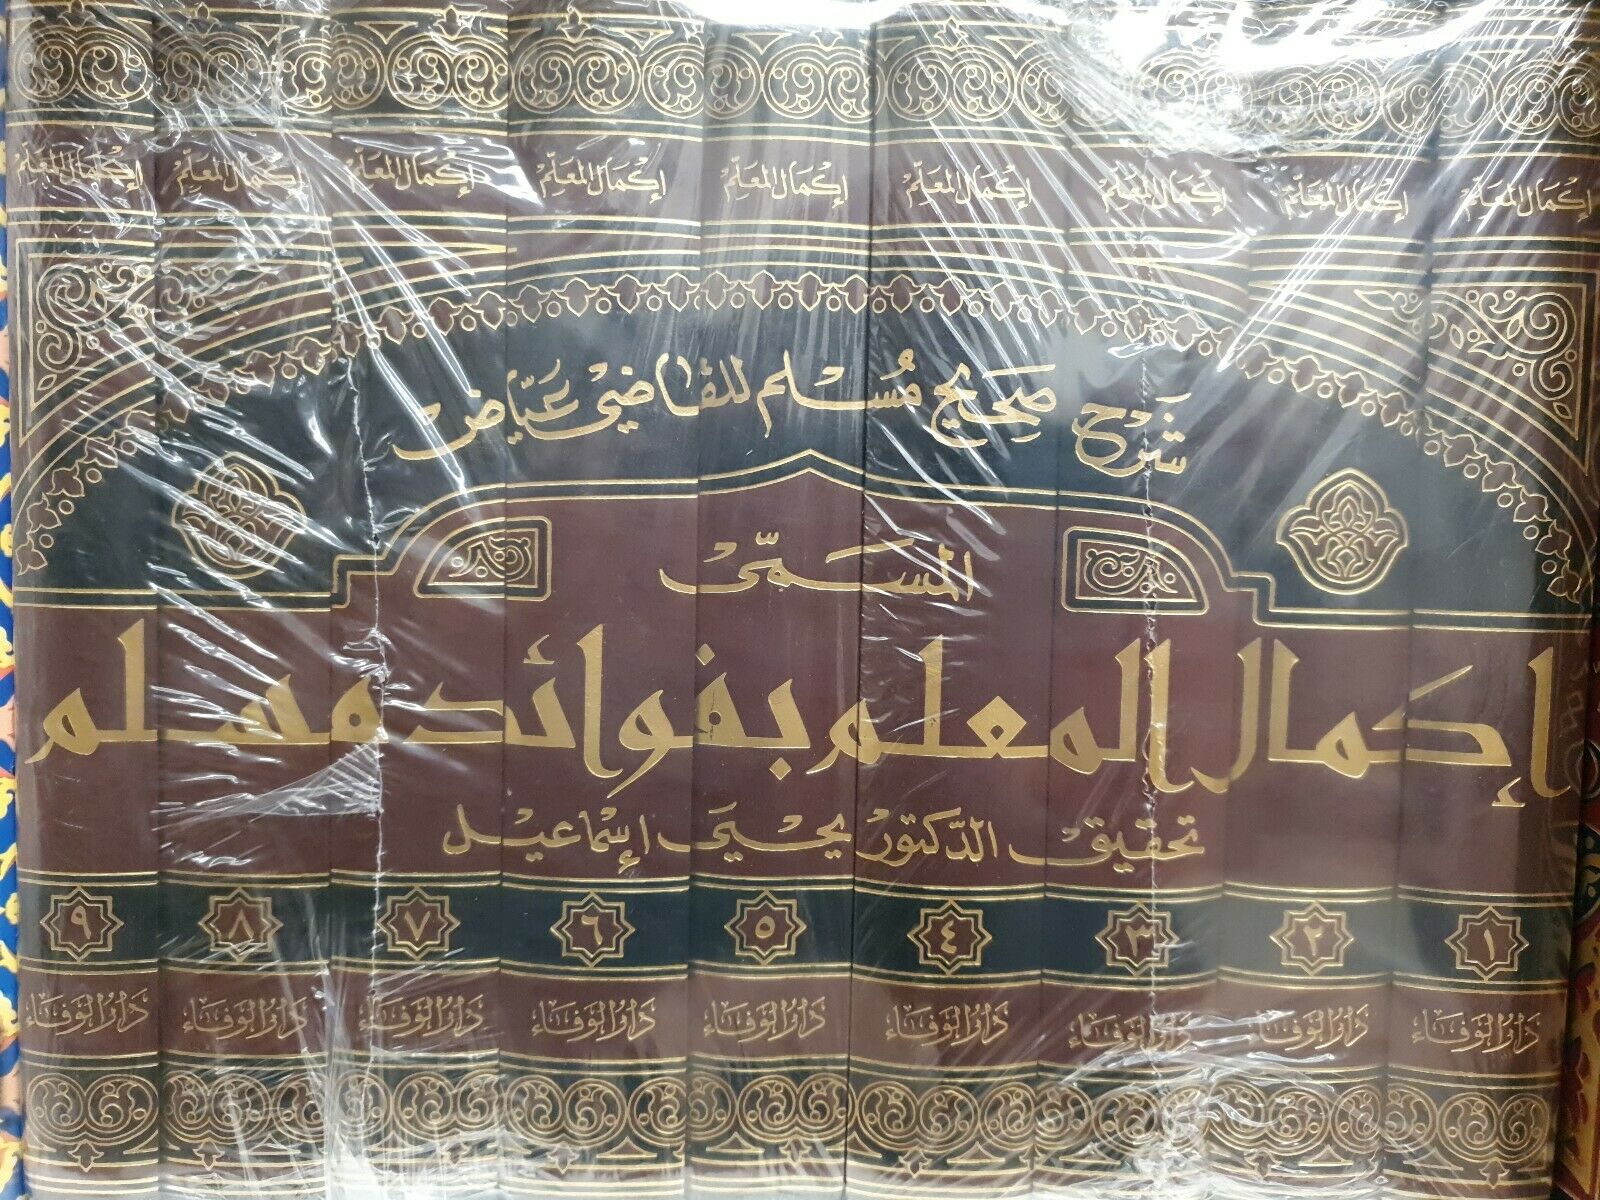 إكمال المعلم إكمال المعلم إكمال المعلم إكمال المعلم إكمال المعلم إكمال المعلم إكمال المعلم إكمال المعلم إكمال المعلم
شرح صحيح مسلم للقاضي عياض
المسمى
إكمال المعلم بفوائد مسلم
تحقيق الدكتور يحيى إسماعيل
١ ٢ ٣ ٤ ٥ ٦ ٧ ٨ ٩
دار الوفاء دار الوفاء دار الوفاء دار الوفاء دار الوفاء دار الوفاء دار الوفاء دار الوفاء دار الوفاء